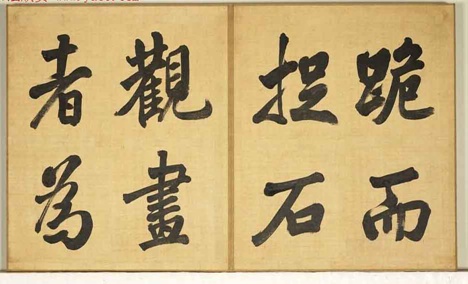 跪而
捉石
觀畫
者為